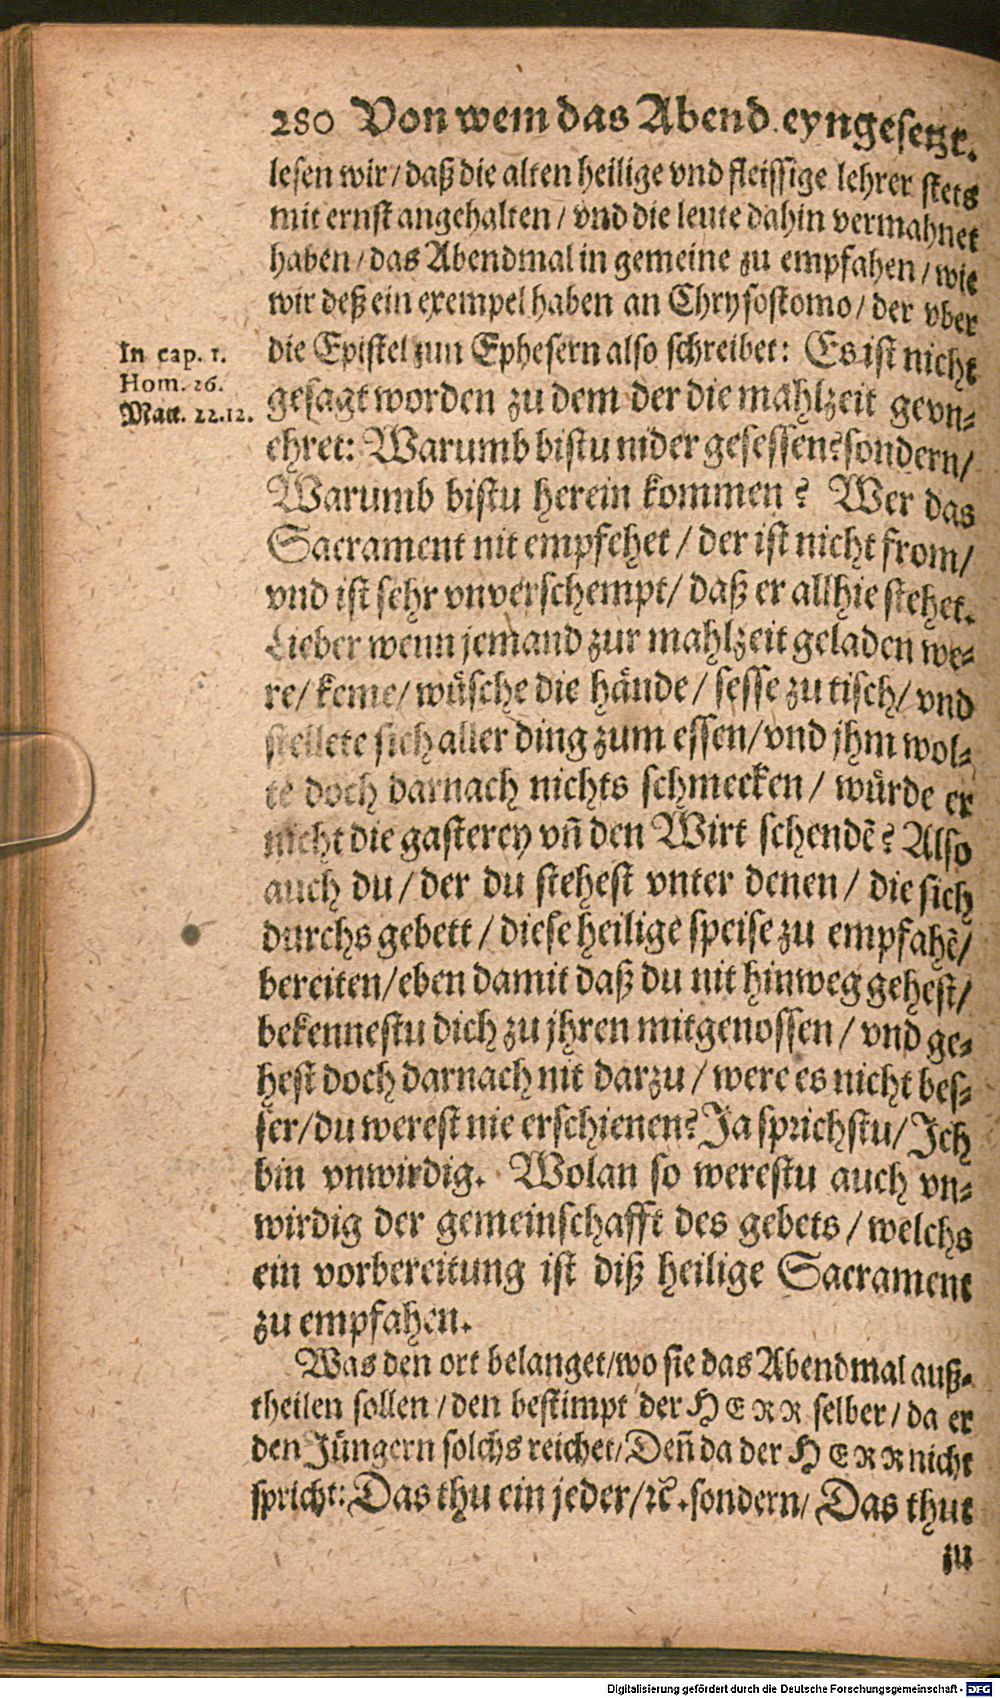 280 Von wem das Abend. eyngesetzt.
lesen wir / daß die alten heilige vnd fleissige lehrer stets
mit ernst angehalten / vnd die leute dahin vermahnet
haben / das Abendmal in gemeine zu empfahen / wie
wir deß ein exempel haben an Chrysostomo / der vber
In cap. 1.
Hom. 26.
Matt. 22.12.
die Epistel zun Ephesern also schreibet: Es ist nicht
gesagt worden zu dem der die mahlzeit gevn⸗
ehret: Warumb bistu nider gesessen? sondern /
Warumb bistu herein kommen? Wer das
Sacrament nit empfehet / der ist nicht from /
vnd ist sehr vnverschempt / daß er allhie stehet.
Lieber wenn jemand zur mahlzeit geladen we⸗
re / keme / wüsche die hände / sesse zu tisch / vnd
stellete sich aller ding zum essen / vnd jhm wol⸗
te doch darnach nichts schmecken / würde er
nicht die gasterey vñ den Wirt schendẽ? Also
auch du / der du stehest vnter denen / die sich
durchs gebett / diese heilige speise zu empfahẽ /
bereiten / eben damit daß du nit hinweg gehest /
bekennestu dich zu jhren mitgenossen / vnd ge⸗
hest doch darnach nit darzu / were es nicht bes⸗
ser / du werest nie erschienen? Ja sprichstu / Ich
bin vnwirdig. Wolan so werestu auch vn⸗
wirdig der gemeinschafft des gebets / welchs
ein vorbereitung ist diß heilige Sacrament
zu empfahen.
Was den ort belanget / wo sie das Abendmal auß⸗
theilen sollen / den bestimpt der HERR selber / da er
den Jüngern solchs reichet / Deñ da der HERR nicht
spricht: Das thu ein jeder / ꝛc. sondern / Das thut
zu
Digitalisierung gefördert durch die Deutsche Forschungsgemeinschaft - DFG